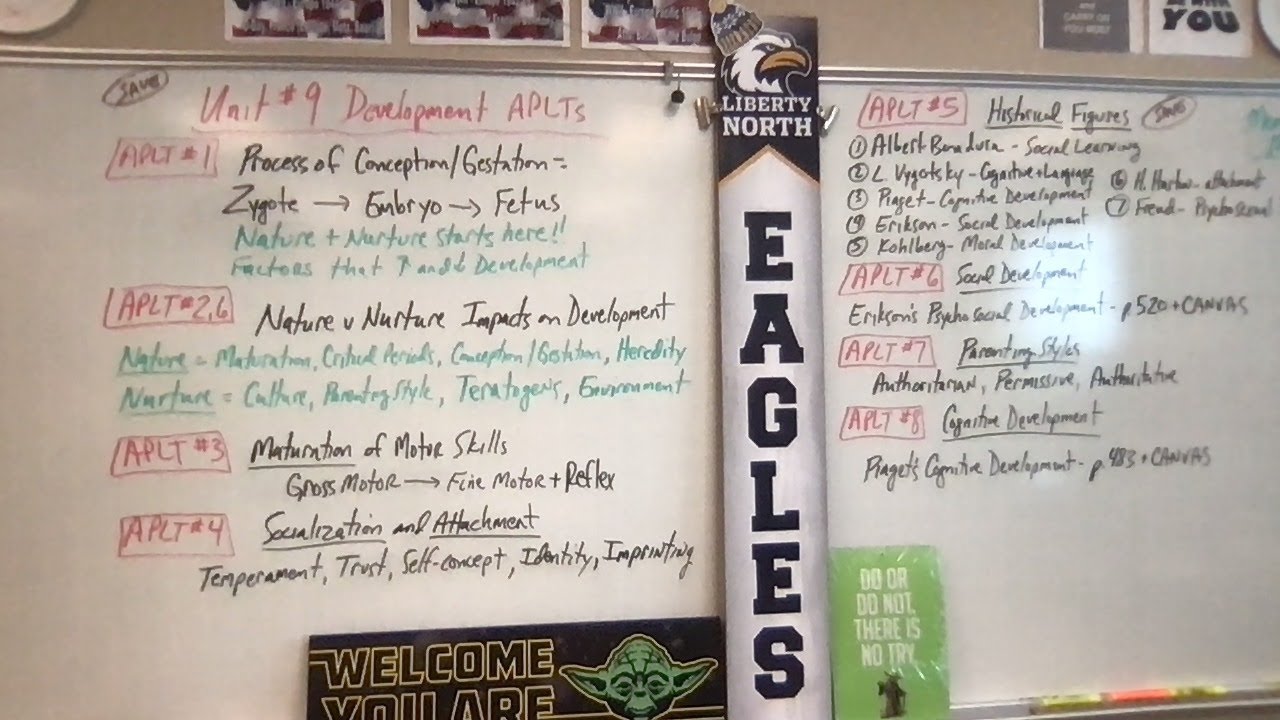 SAVE
Unit #9 Development APLTs
APLT #1 Process of Conception/Gestation =
Zygote → Embryo → Fetus
Nature + Nurture starts here!!
Factors that ↑ and ↓ Development
APLT #2,6 Nature v Nurture Impacts on Development
Nature = Maturation, Critical Periods, Conception/Gestation, Heredity
Nurture = Culture, Parenting Style, Teratogens, Environment
APLT #3 Maturation of Motor Skills
Gross Motor → Fine Motor + Reflex
APLT #4 Socialization and Attachment
Temperament, Trust, Self-concept, Identity, Imprinting
WELCOME
YOU ARE
LIBERTY
NORTH
EAGLES
CARRY ON
YOU
APLT #5 Historical Figures SAVE
① Albert Bandura - Social Learning
② L. Vygotsky - Cognitive + Language
③ Piaget - Cognitive Development
④ Erikson - Social Development
⑤ Kohlberg - Moral Development
⑥ H. Harlow - attachment
⑦ Freud - Psychosexual
APLT #6 Social Development
Erikson's Psychosocial Development - p.520 + CANVAS
APLT #7 Parenting Styles
Authoritarian, Permissive, Authoritative
APLT #8 Cognitive Development
Piaget's Cognitive Development - p.483 + CANVAS
DO OR
DO NOT.
THERE IS
NO TRY.